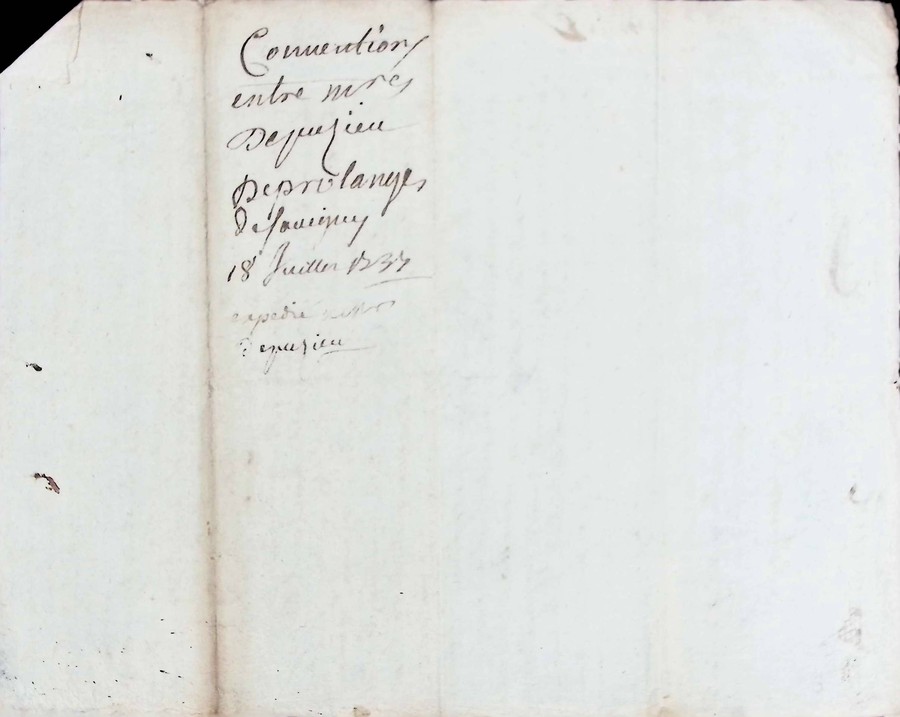 Conventions
entre mrs
Depuzieu
Deprolanges
de Souvigny
18 Juillet 1737
expedié
Depuzieu